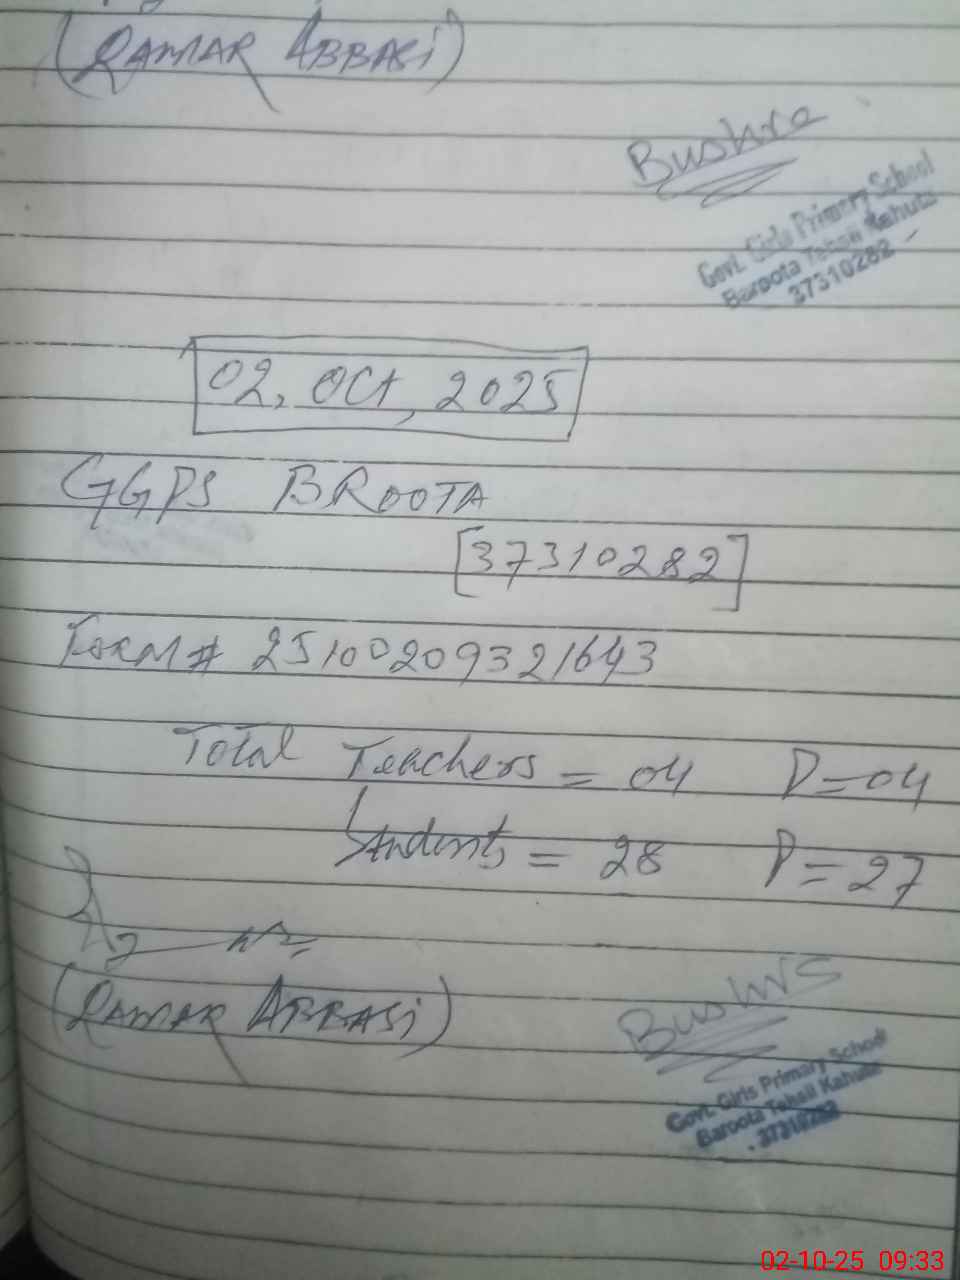 (QAMAR ABBASI)
Bushra
Govt. Girls Primary School
Baroota Tehsil Kahuta
37310282
02, Oct, 2025
GGPS BROOTA
[37310282]
Form# 25100209321643
Total Teachers = 04 P=04
Students = 28 P=27
(QAMAR ABBASI)
Bushra
Govt. Girls Primary School
Baroota Tehsil Kahuta
37310282
02-10-25 09:33